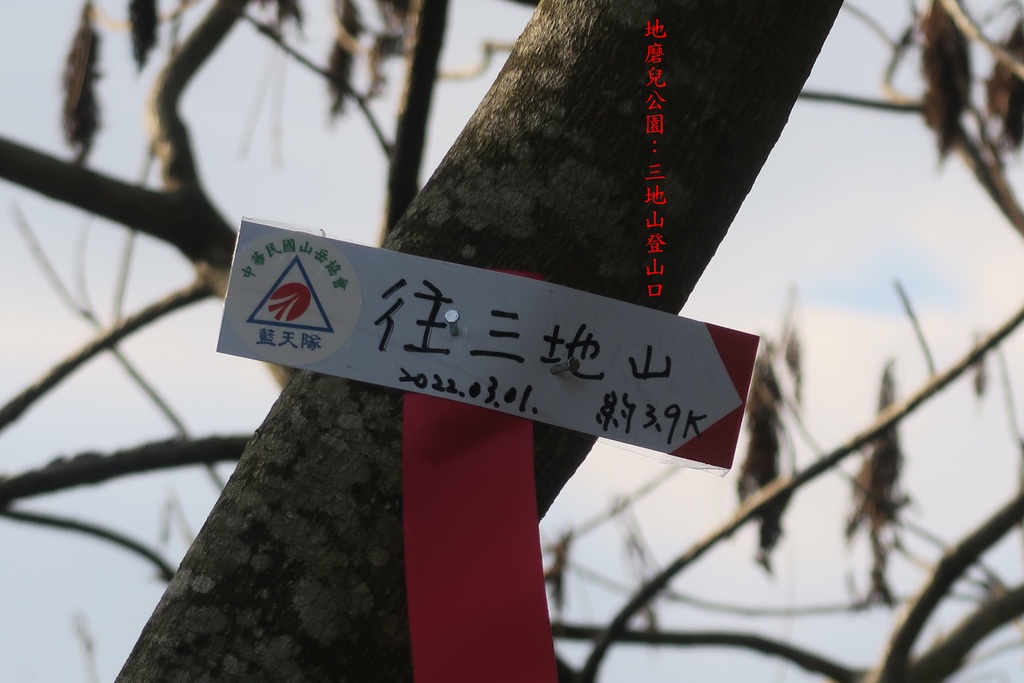 地磨兒公園：三地山登山口
中華民國山岳協會
藍天隊
往三地山
2022.03.01.
約3.9K